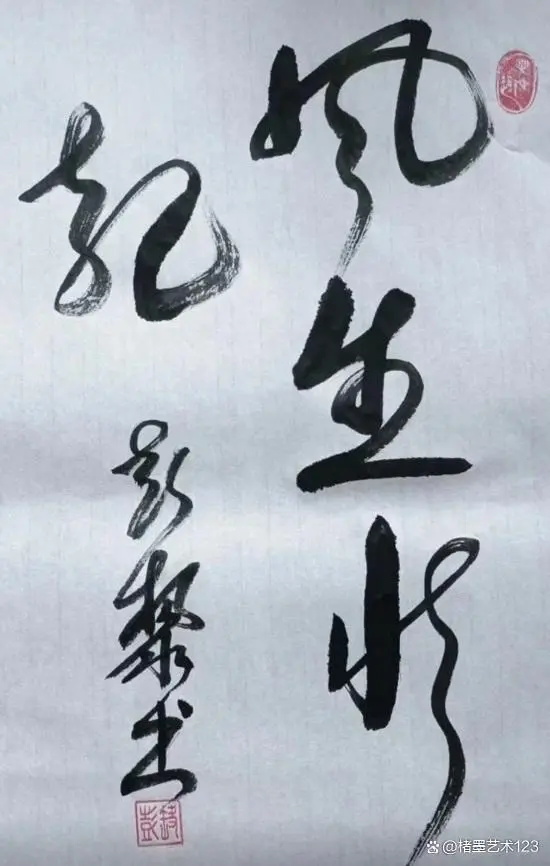 风生水
起
彭黎书
楮墨艺术123